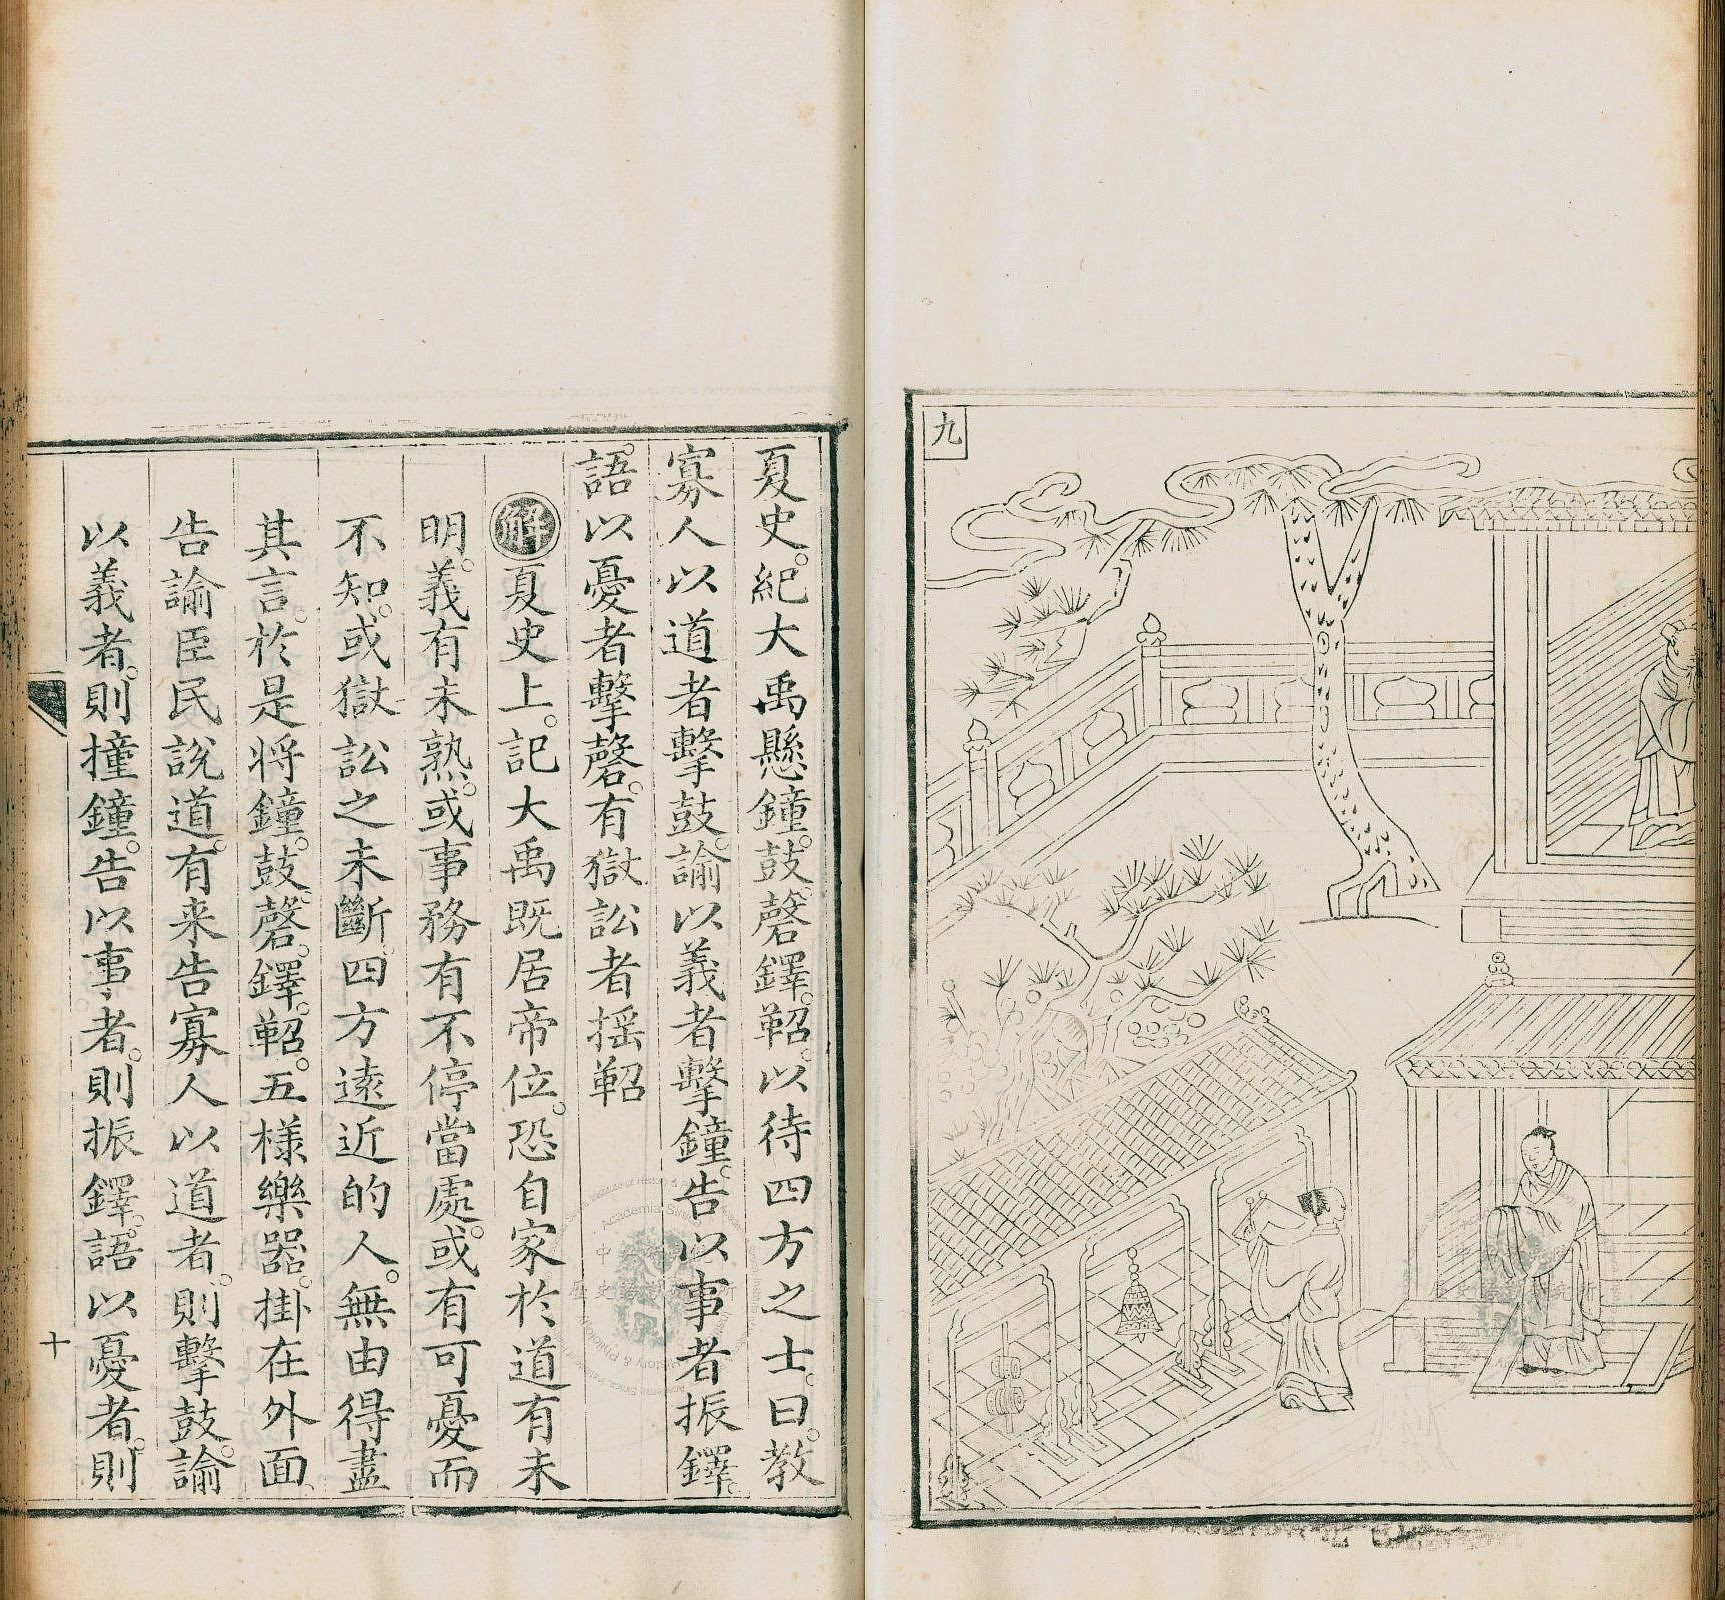 九
夏史。紀大禹懸鐘。鼓。磬。鐸。鞀。以待四方之士。曰。教
寡人以道者擊鼓。諭以義者擊鐘。告以事者振鐸。
語以憂者擊磬。有獄訟者揺鞀
解夏史上。記大禹既居帝位。恐自家於道有未
明。義有未熟。或事務有不停當處。或有可憂而
不知。或獄訟之未斷。四方遠近的人。無由得盡
其言。於是将鐘。鼓。磬。鐸。鞀。五樣樂器。掛在外面。
告諭臣民說道。有来告寡人以道者。則擊鼓。諭
以義者。則撞鐘。告以事者。則振鐸。語以憂者。則
十